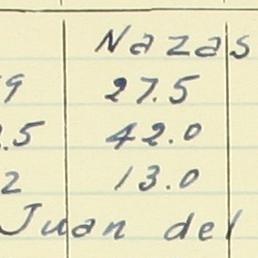 Nazas
9 27.5
.5 42.0
2 13.0
Juan del